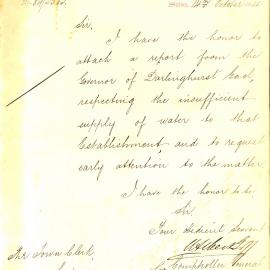 14th October
Sir,
I have the honor to
attach a report from the
Governor of Darlinghurst Gaol,
respecting the insufficient
supply of water to that
Establishment and to request
early attention to the matter.
I have the honor to be
Sir,
Your Obedient Servant
The Town Clerk, Comptroller General